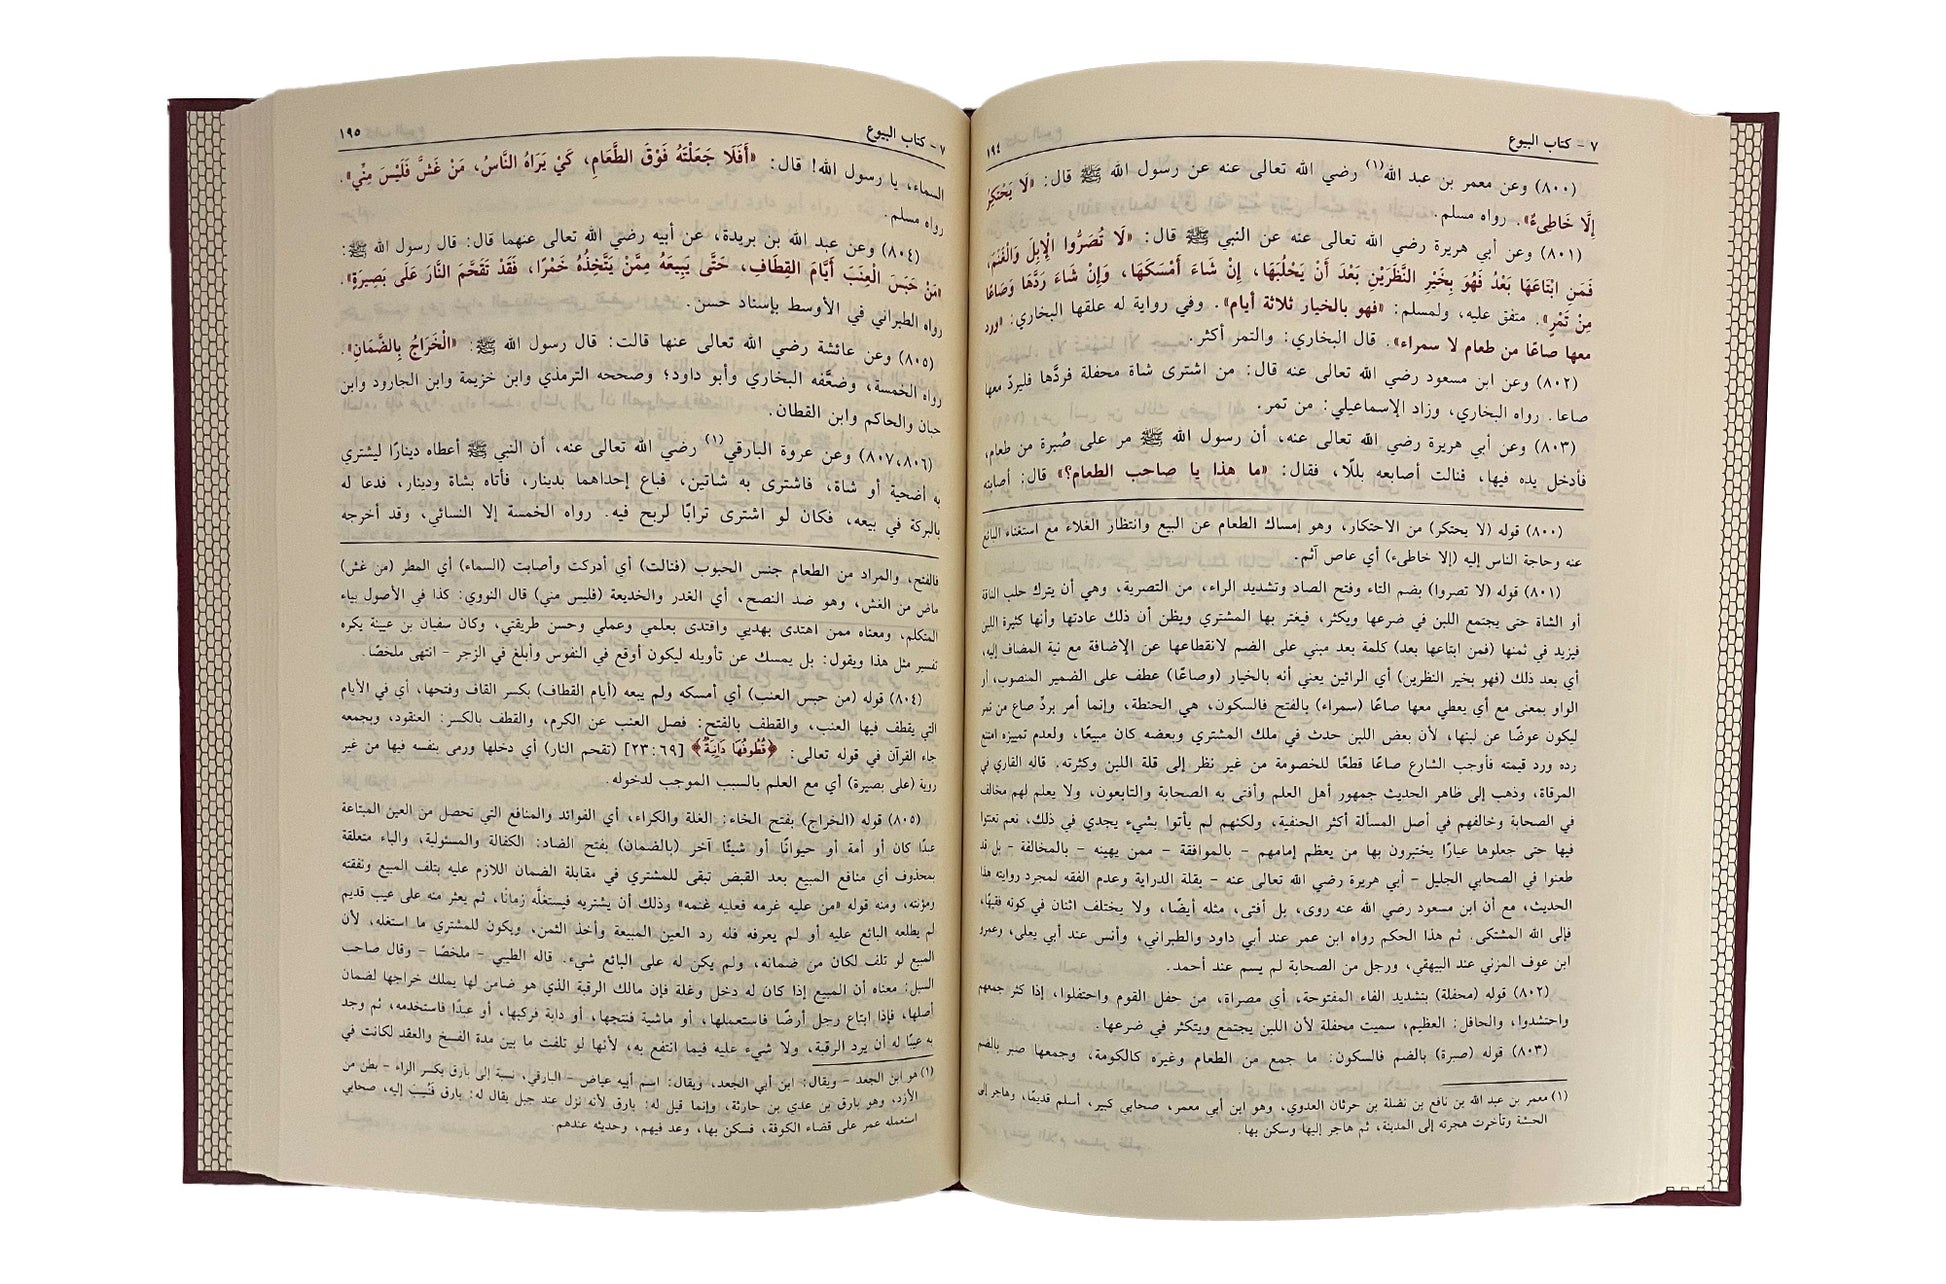 ٧ - كتاب البيوع
١٩٤
(٨٠٠) وعن معمر بن عبد الله(١) رضي الله تعالى عنه عن رسول الله ﷺ قال: «لَا يَحْتَكِر
إِلَّا خَاطِىءٌ». رواه مسلم.
(٨٠١) وعن أبي هريرة رضي الله تعالى عنه عن النبي ﷺ قال: «لَا تُصَرُّوا الْإِبِلَ وَالْغَنَمَ،
فَمَنِ ابْتَاعَهَا بَعْدُ فَهُوَ بِخَيْرِ النَّظَرَيْنِ بَعْدَ أَنْ يَحْلُبَهَا، إِنْ شَاءَ أَمْسَكَهَا، وَإِنْ شَاءَ رَدَّهَا وَصَاعًا
مِنْ تَمْرٍ». متفق عليه، ولمسلم: «فهو بالخيار ثلاثة أيام». وفي رواية له علقها البخاري: «ورد
معها صاعًا من طعام لا سمراء». قال البخاري: والتمر أكثر.
(٨٠٢) وعن ابن مسعود رضي الله تعالى عنه قال: من اشترى شاة محفلة فردَّها فليردّ معها
صاعا. رواه البخاري، وزاد الإسماعيلي: من تمر.
(٨٠٣) وعن أبي هريرة رضي الله تعالى عنه، أن رسول الله ﷺ مر على صُبرة من طعام،
فأدخل يده فيها، فنالت أصابعه بللًا، فقال: «ما هذا يا صاحب الطعام؟» قال: أصابته
(٨٠٠) قوله (لا يحتكر) من الاحتكار، وهو إمساك الطعام عن البيع وانتظار الغلاء مع استغناء البائع
عنه وحاجة الناس إليه (إلا خاطىء) أي عاص آثم.
(٨٠١) قوله (لا تصروا) بضم التاء وفتح الصاد وتشديد الراء، من التصرية، وهي أن يترك حلب الناقة
أو الشاة حتى يجتمع اللبن في ضرعها ويكثر، فيغتر بها المشتري ويظن أن ذلك عادتها وأنها كثيرة اللبن
فيزيد في ثمنها (فمن ابتاعها بعد) كلمة بعد مبني على الضم لانقطاعها عن الإضافة مع نية المضاف إليه،
أي بعد ذلك (فهو بخير النظرين) أي الرائين يعني أنه بالخيار (وصاعًا) عطف على الضمير المنصوب، أو
الواو بمعنى مع أي يعطي معها صاعًا (سمراء) بالفتح فالسكون، هي الحنطة، وإنما أمر بردِّ صاع من تمر
ليكون عوضًا عن لبنها، لأن بعض اللبن حدث في ملك المشتري وبعضه كان مبيعًا، ولعدم تمييزه امتنع
رده ورد قيمته فأوجب الشارع صاعًا قطعًا للخصومة من غير نظر إلى قلة اللبن وكثرته. قاله القاري في
المرقاة، وذهب إلى ظاهر الحديث جمهور أهل العلم وأفتى به الصحابة والتابعون، ولا يعلم لهم مخالف
في الصحابة وخالفهم في أصل المسألة أكثر الحنفية، ولكنهم لم يأتوا بشيء يجدي في ذلك، نعم تعنتوا
فيها حتى جعلوها عيارًا يختبرون بها من يعظم إمامهم - بالموافقة - ممن يهينه - بالمخالفة - بل قد
طعنوا في الصحابي الجليل - أبي هريرة رضي الله تعالى عنه - بقلة الدراية وعدم الفقه لمجرد روايته هذا
الحديث، مع أن ابن مسعود رضي الله عنه روى، بل أفتى، مثله أيضًا، ولا يختلف اثنان في كونه فقيهًا،
فإلى الله المشتكى. ثم هذا الحكم رواه ابن عمر عند أبي داود والطبراني، وأنس عند أبي يعلى، وعمرو
ابن عوف المزني عند البيهقي، ورجل من الصحابة لم يسم عند أحمد.
(٨٠٢) قوله (محفلة) بتشديد الفاء المفتوحة، أي مصراة، من حفل القوم واحتفلوا، إذا كثر جمعهم
واحتشدوا، والحافل: العظيم، سميت محفلة لأن اللبن يجتمع ويتكثر في ضرعها.
(٨٠٣) قوله (صبرة) بالضم فالسكون: ما جمع من الطعام وغيره كالكومة، وجمعها صبر بالضم
(١) معمر بن عبد الله بن نافع بن نضلة بن حرثان العدوي، وهو ابن أبي معمر، صحابي كبير، أسلم قديمًا، وهاجر إلى
الحبشة وتأخرت هجرته إلى المدينة، ثم هاجر إليها وسكن بها.
٧ - كتاب البيوع
١٩٥
السماء، يا رسول الله! قال: «أَفَلَا جَعَلْتَهُ فَوْقَ الطَّعَامِ، كَيْ يَرَاهُ النَّاسُ، مَنْ غَشَّ فَلَيْسَ مِنِّي».
رواه مسلم.
(٨٠٤) وعن عبد الله بن بريدة، عن أبيه رضي الله تعالى عنهما قال: قال رسول الله ﷺ:
«مَنْ حَبَسَ الْعِنَبَ أَيَّامَ القِطَافِ، حَتَّى يَبِيعَهُ مِمَّنْ يَتَّخِذُهُ خَمْرًا، فَقَدْ تَقَحَّمَ النَّارَ عَلَى بَصِيرَةٍ».
رواه الطبراني في الأوسط بإسناد حسن.
(٨٠٥) وعن عائشة رضي الله تعالى عنها قالت: قال رسول الله ﷺ: «الْخَرَاجُ بِالضَّمَانِ».
رواه الخمسة، وضعَّفه البخاري وأبو داود؛ وصححه الترمذي وابن خزيمة وابن الجارود وابن
حبان والحاكم وابن القطان.
(٨٠٦،٨٠٧) وعن عروة البارقي(١) رضي الله تعالى عنه، أن النبي ﷺ أعطاه دينارًا ليشتري
به أضحية أو شاة، فاشترى به شاتين، فباع إحداهما بدينار، فأتاه بشاة ودينار، فدعا له
بالبركة في بيعه، فكان لو اشترى ترابًا لربح فيه. رواه الخمسة إلا النسائي، وقد أخرجه
فالفتح، والمراد من الطعام جنس الحبوب (فنالت) أي أدركت وأصابت (السماء) أي المطر (من غش)
ماض من الغش، وهو ضد النصح، أي الغدر والخديعة (فليس مني) قال النووي: كذا في الأصول بياء
المتكلم، ومعناه ممن اهتدى بهديي واقتدى بعلمي وعملي وحسن طريقتي، وكان سفيان بن عيينة يكره
تفسير مثل هذا ويقول: بل يمسك عن تأويله ليكون أوقع في النفوس وأبلغ في الزجر - انتهى ملخصًا.
(٨٠٤) قوله (من حبس العنب) أي أمسكه ولم يبعه (أيام القطاف) بكسر القاف وفتحها، أي في الأيام
التي يقطف فيها العنب، والقطف بالفتح: فصل العنب عن الكرم، والقطف بالكسر: العنقود، وبجمعه
جاء القرآن في قوله تعالى: ﴿قُطُوفُهَا دَانِيَةٌ﴾ [٢٣:٦٩] (تقحم النار) أي دخلها ورمى بنفسه فيها من غير
روية (على بصيرة) أي مع العلم بالسبب الموجب لدخوله.
(٨٠٥) قوله (الخراج) بفتح الخاء: الغلة والكراء، أي الفوائد والمنافع التي تحصل من العين المبتاعة
عبدًا كان أو أمة أو حيوانًا أو شيئًا آخر (بالضمان) بفتح الضاد: الكفالة والمسئولية، والباء متعلقة
بمحذوف أي منافع المبيع بعد القبض تبقى للمشتري في مقابلة الضمان اللازم عليه بتلف المبيع ونفقته
ومؤنته، ومنه قوله «من عليه غرمه فعليه غنمه» وذلك أن يشتريه فيستغلَّه زمانًا، ثم يعثر منه على عيب قديم
لم يطلعه البائع عليه أو لم يعرفه فله رد العين المبيعة وأخذ الثمن، ويكون للمشتري ما استغله، لأن
المبيع لو تلف لكان من ضمانه، ولم يكن له على البائع شيء. قاله الطيبي - ملخصًا - وقال صاحب
السبل: معناه أن المبيع إذا كان له دخل وغلة فإن مالك الرقبة الذي هو ضامن لها يملك خراجها لضمان
أصلها، فإذا ابتاع رجل أرضًا فاستعملها، أو ماشية فنتجها، أو دابة فركبها، أو عبدًا فاستخدمه، ثم وجد
به عيبًا له أن يرد الرقبة، ولا شيء عليه فيما انتفع به، لأنها لو تلفت ما بين مدة الفسخ والعقد لكانت في
(١) هو ابن الجعد - ويقال: ابن أبي الجعد، ويقال: اسم أبيه عياض - البارقي، نسبة إلى بارق بكسر الراء - بطن من
الأزد، وهو بارق بن عدي بن حارثة، وإنما قيل له: بارق لأنه نزل عند جبل يقال له: بارق فنُسِب إليه، صحابي
استعمله عمر على قضاء الكوفة، فسكن بها، وعد فيهم، وحديثه عندهم.